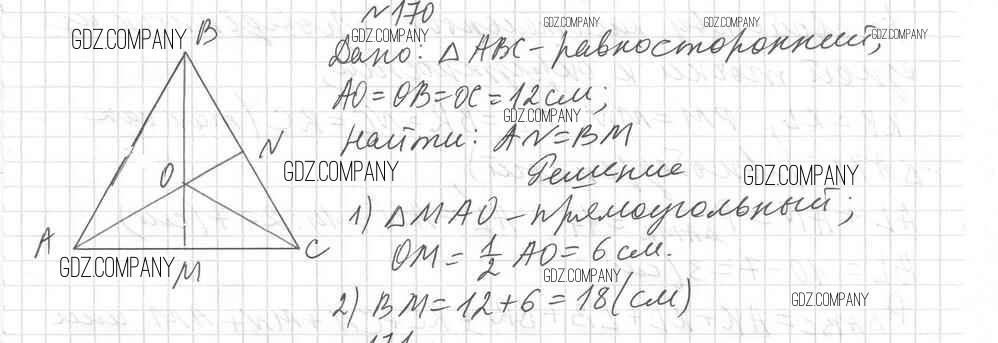 №170
GDZ.COMPANY GDZ.COMPANY
GDZ.COMPANY B GDZ.COMPANY GDZ.COMPANY
Дано: △ABC - равносторонний;
AO=OB=OC=12см;
GDZ.COMPANY
Найти: AN=BM
N
GDZ.COMPANY Решение GDZ.COMPANY
O
1) △MAO - прямоугольный;
A C
OM = 1/2 AO = 6 см.
GDZ.COMPANY M GDZ.COMPANY
2) BM=12+6=18(см)
GDZ.COMPANY
171